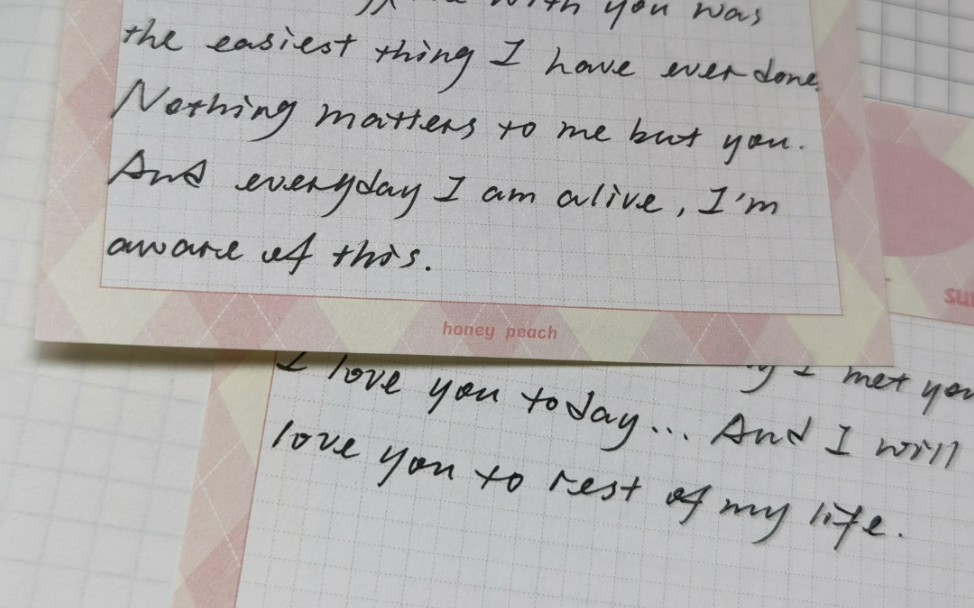 with you was
the easiest thing I have ever done.
Nothing matters to me but you.
And everyday I am alive, I'm
aware of this.
honey peach
I met you
I love you today... And I will
love you to rest of my life.